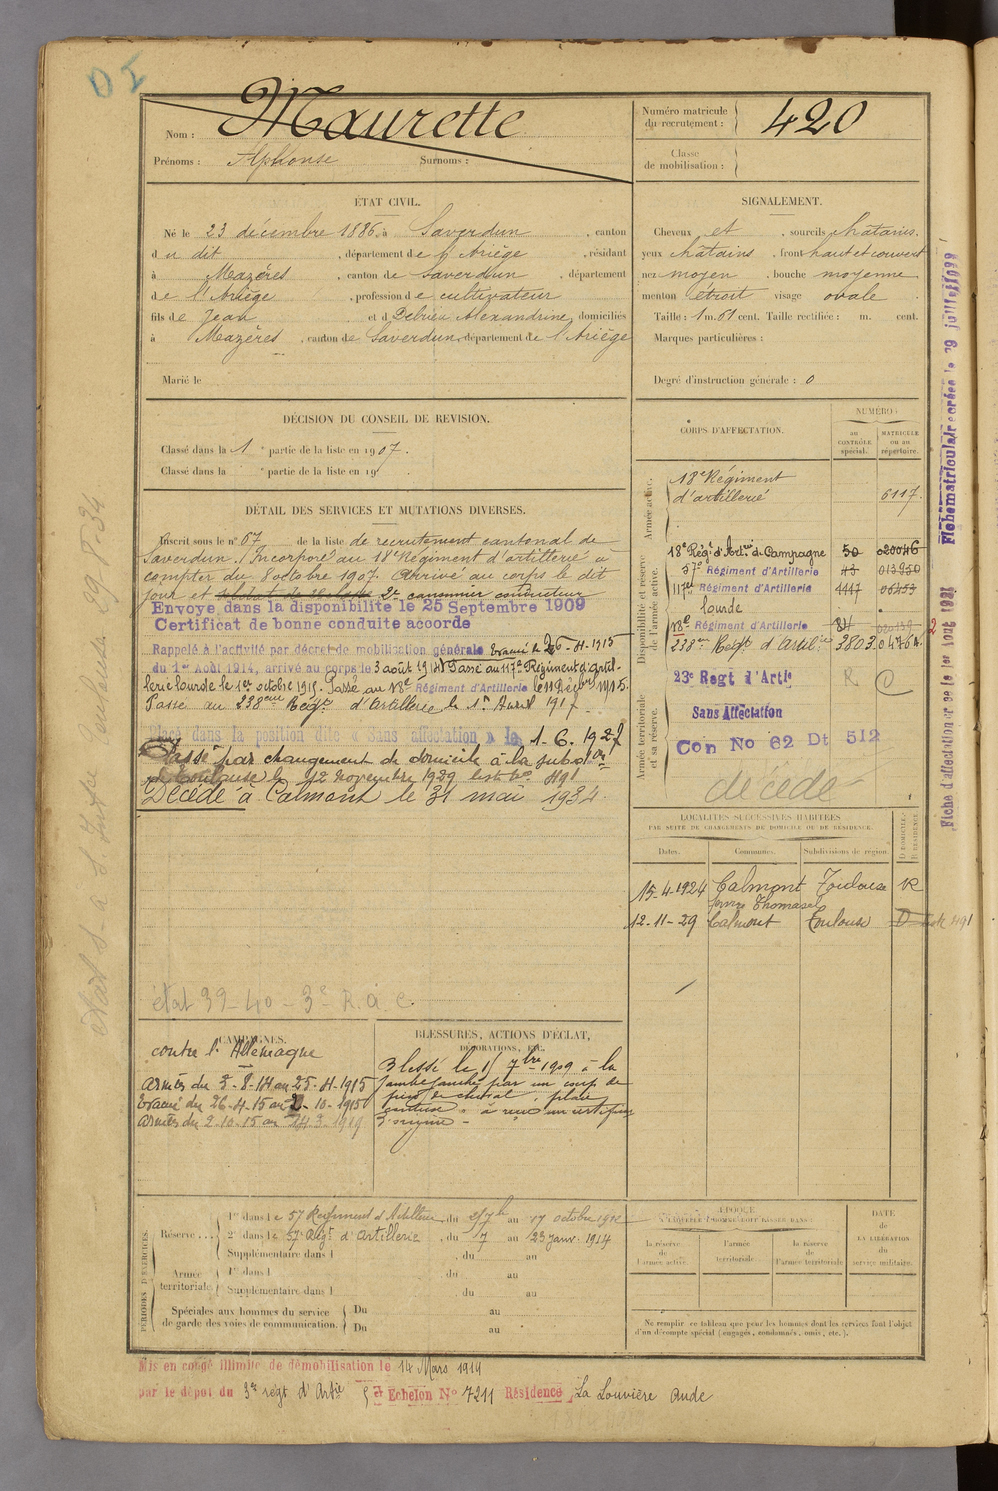 Nom : Maurette
Prénoms : Alphonse Surnoms :
Numéro matricule du recrutement : 420
Classe de mobilisation :
ÉTAT CIVIL.
Né le 23 décembre 1886, à Saverdun , canton
du dit , département de l'Ariège , résidant
à Mazères , canton de Saverdun , département
de l'Ariège , profession de cultivateur
fils de Jean et d Debrieu Alexandrine, domiciliés
à Mazères , canton de Saverdun, département de l'Ariège
Marié le
SIGNALEMENT.
Cheveux et , sourcils châtains.
yeux châtains , front haut et couvert
nez moyen , bouche moyenne
menton étroit visage ovale
Taille : 1 m. 61 cent. Taille rectifiée : m. cent.
Marques particulières :
Degré d'instruction générale : 0
DÉCISION DU CONSEIL DE REVISION.
Classé dans la 1 e partie de la liste en 1907.
Classé dans la e partie de la liste en 19 .
DÉTAIL DES SERVICES ET MUTATIONS DIVERSES.
Inscrit sous le n° 67 de la liste de recrutement cantonal de
Saverdun. Incorporé au 18e Régiment d'artillerie à
compter du 8 octobre 1907. Arrivé au corps le dit
jour et 2e canonnier conducteur
Envoyé dans la disponibilité le 25 Septembre 1909
Certificat de bonne conduite accordé
Rappelé à l'activité par décret de mobilisation générale Evacué le 26-4-1915
du 1er Août 1914, arrivé au corps le 3 août 1914 Passé au 117e Régiment d'artil-
lerie lourde le 1er octobre 1915. Passé au 18e Régiment d'Artillerie le 11 Décbre 1915.
Passé au 238eme Régt d'Artillerie le 1er Avril 1917
Placé dans la position dite « Sans affectation » le 1.6.1927
Passé par changement de domicile à la subdion
de Toulouse le 12 novembre 1929 491
Décédé à Calmont le 31 mai 1934.
état 39-40 - 3e R.a.c.
CORPS D'AFFECTATION.
NUMÉROS
au CONTRÔLE spécial.
MATRICULE ou au répertoire.
Armée active.
18e Régiment d'artillerie 6117.
Disponibilité et réserve de l'armée active.
18e Régt d'Artrie de Campagne 50 020046
57e Régiment d'Artillerie 43 013950
117e Régiment d'Artillerie 4417 06453
lourde
18e Régiment d'Artillerie 84
238eme Régt d'Artillie 380 3.0476 2.
Armée territoriale et sa réserve.
23e Regt d'Artie R C
Sans Affectation
Con No 62 Dt 512
décédé
LOCALITÉS SUCCESSIVES HABITÉES
PAR SUITE DE CHANGEMENTS DE DOMICILE OU DE RÉSIDENCE.
Dates. Communes. Subdivisions de région. D. DOMICILE. R. RÉSIDENCE.
15-4-1924 Calmont Toulouse R
ferme Thomasel
12-11-29 Calmont Toulouse D 491
CAMPAGNES.
contre l'Allemagne
armées du 3-8-14 au 25-4-1915
Evacué du 26-4-15 au 2-10-1915
armées du 2-10-15 au
BLESSURES, ACTIONS D'ÉCLAT, DÉCORATIONS, ETC.
Blessé le 7bre 1909 à la
jambe gauche par un coup de
pied de cheval, plaie
contuse. a reçu un certificat
d'origine -
PÉRIODES D'EXERCICES.
Réserve ... 1re dans le 57 Régiment d'Artillerie du 7b au 17 octobre 1912
2e dans le 57e Régt d'artillerie , du 7 au 23 janv. 1914
Supplémentaire dans l , du au
Armée territoriale. 1re dans l , du au
Supplémentaire dans l du au
Spéciales aux hommes du service de garde des voies de communication. Du au
Du au
ÉPOQUE
À LAQUELLE L'HOMME DOIT PASSER DANS :
la réserve de l'armée active
l'armée territoriale
la réserve de l'armée territoriale
DATE de LA LIBÉRATION du service militaire.
Ne remplir ce tableau que pour les hommes dont les services font l'objet
d'un décompte spécial (engagés, condamnés, omis, etc.).
Mis en congé illimité de démobilisation le 14 Mars 1919
par le dépôt du 3e régt d'Artie Echelon No 7211 Résidence La Louvière Aude
Fiche matriculaire créée le 29 juillet
Fiche d'affectation créée le 1er Août 1921